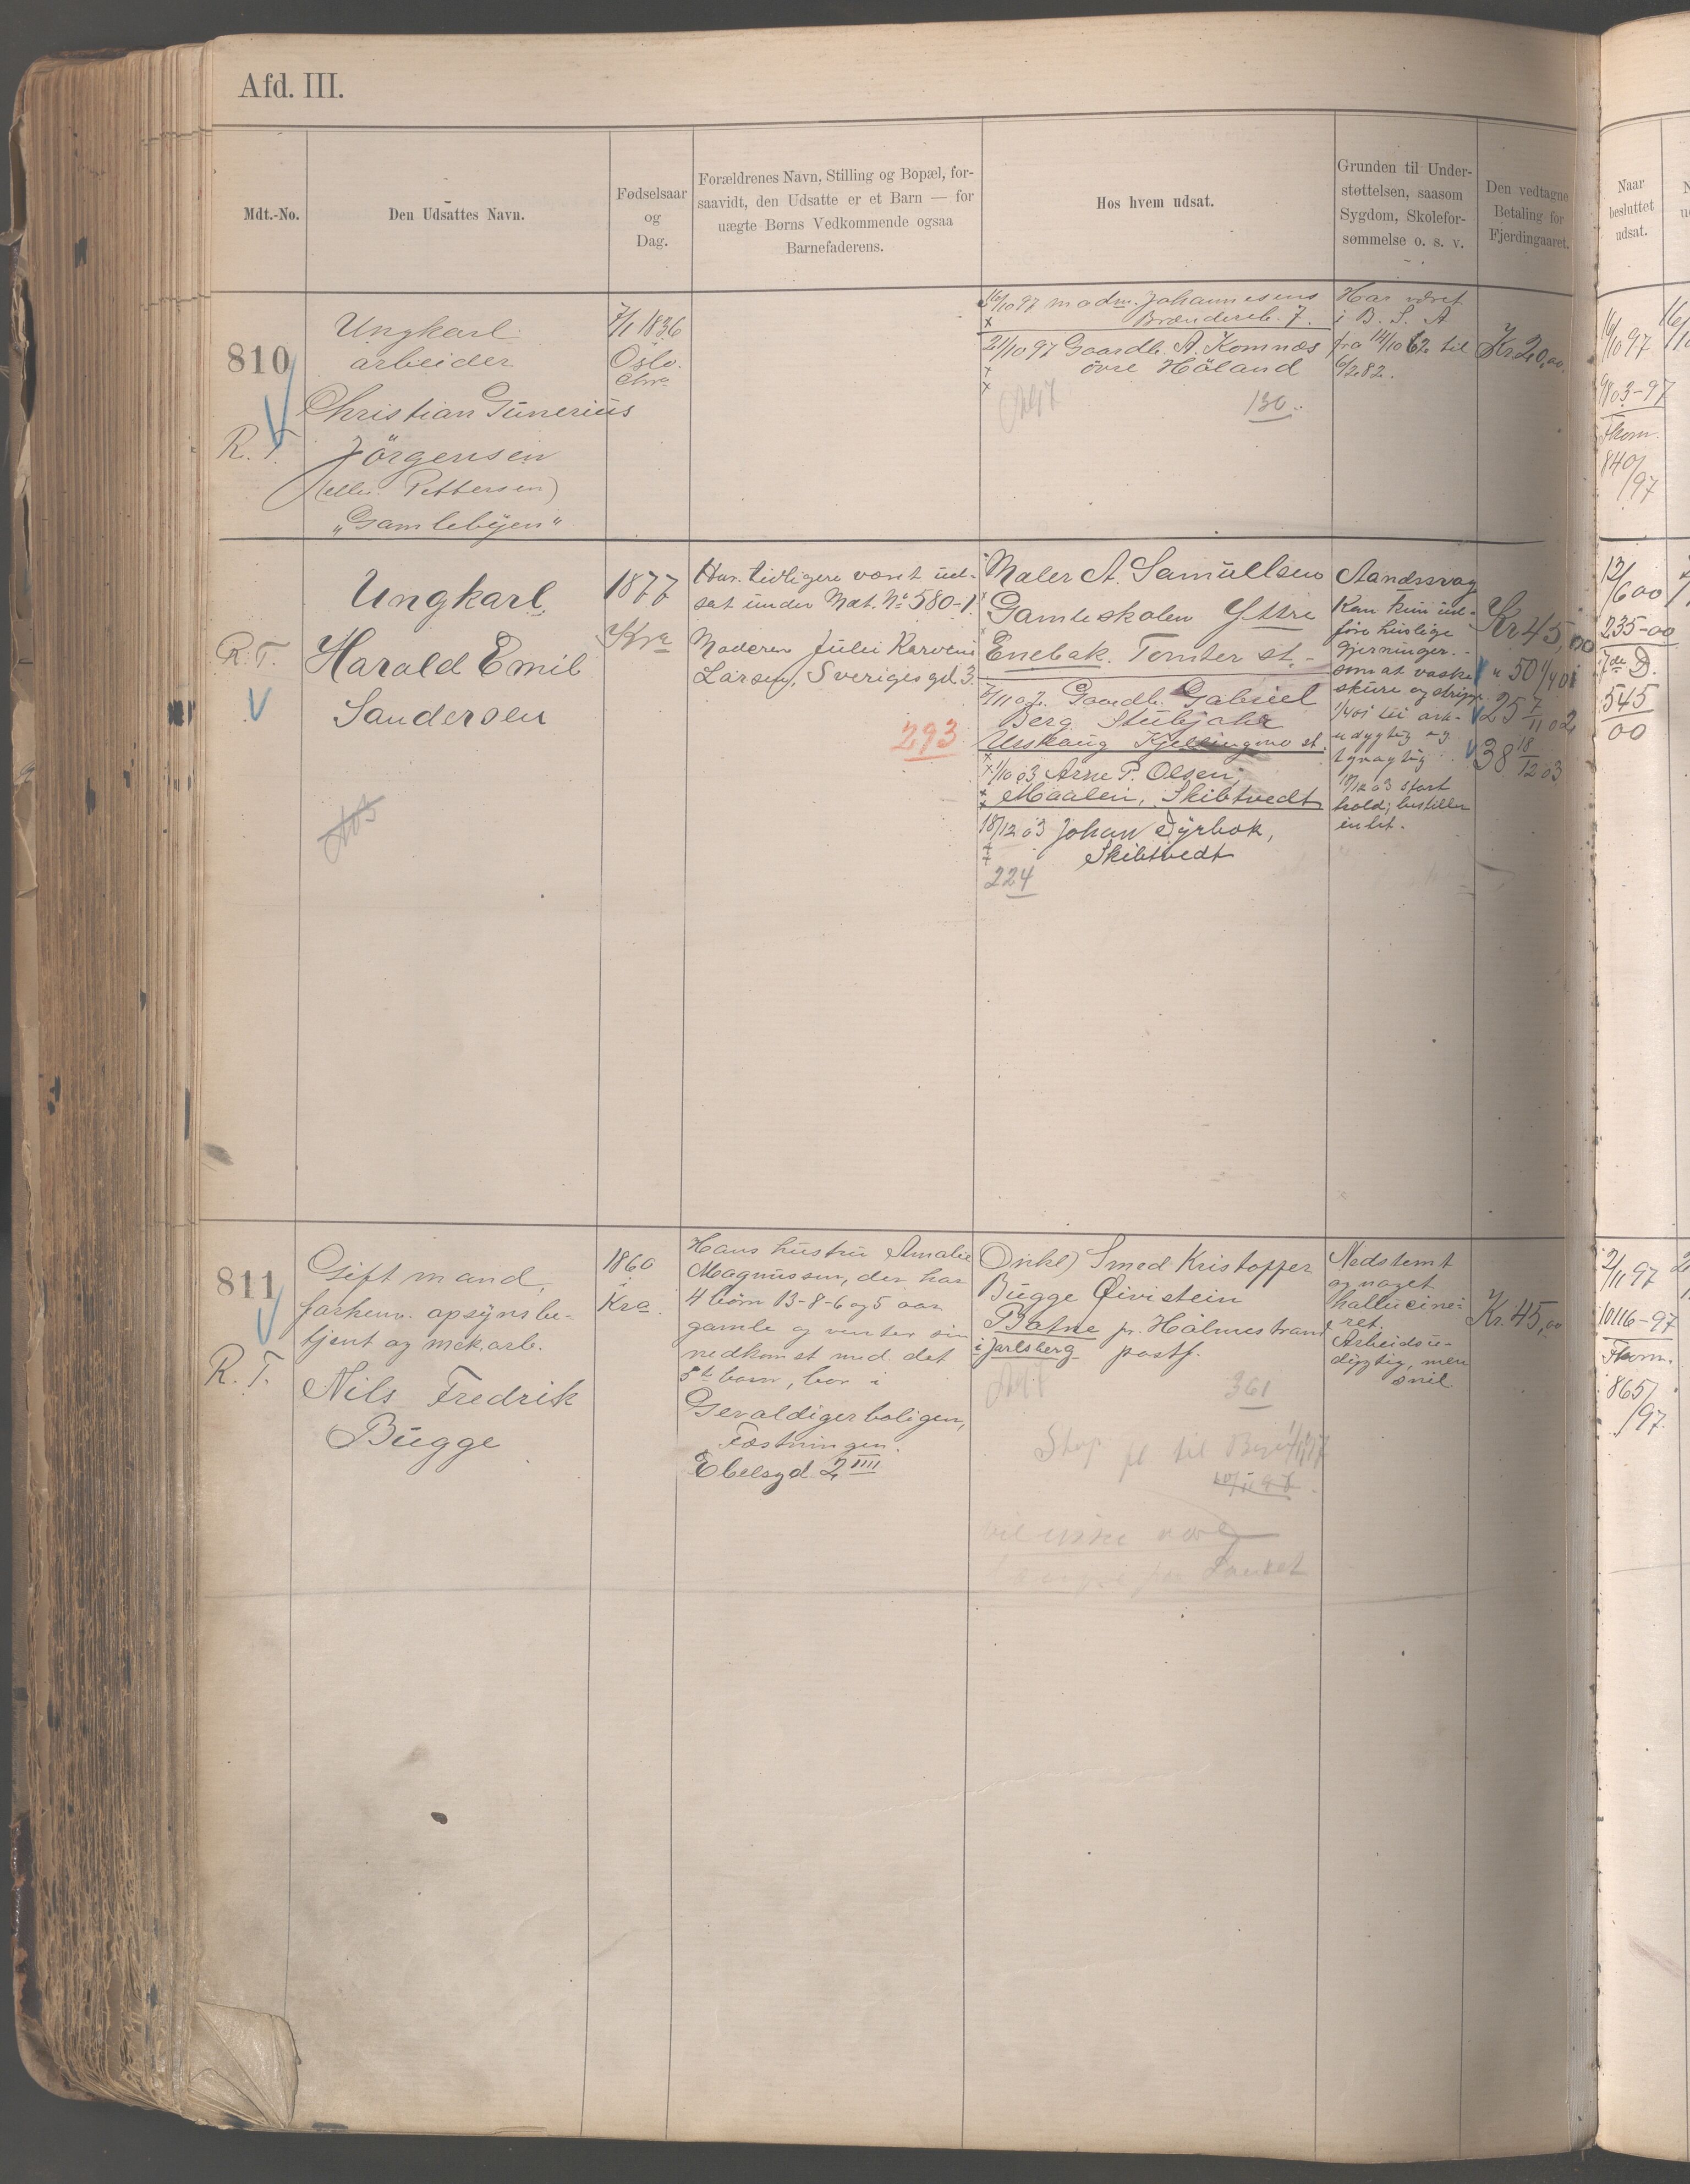 Afd. III.
Mdt.-No.
Den Udsattes Navn.
Fødselsaar
og
Dag.
Forældrenes Navn, Stilling og Bopæl, for-
saavidt, den Udsatte er et Barn — for
uægte Børns Vedkommende ogsaa
Barnefaderens.
Hos hvem udsat.
Grunden til Under-
støttelsen, saasom
Sygdom, Skolefor-
sømmelse o. s. v.
Den vedtagne
Betaling for
Fjerdingaaret.
Naar
besluttet
udsat.
810
R. T.
Ungkarl
arbeider
Christian Gunerius
Jörgensen
(eller Pettersen)
„Gamlebyen"
7/1 1836
Oslo.
Chra
16/10 97 madm. Johannesens
Brændereb. 7.
21/10 97 Gaardb. A. Komnæs
övre Höland
130.
Har været
i B. S. A
fra 14/10 62 til
6/2 82.
Kr. 20,00.
16/10 97
9803-97
Fkom.
840/97
R. T.
Ungkarl
Harald Emil
Sandersen
1877
Kra
Har tidligere været ud-
sat under Mdt. No 580-1.
Moderen Julie
Larsen, Sveriges gd 3.
293
Maler A. Samuelsen
Gamleskolen Yttre
Enebak. Tomter st. -
7/11 02. Gaardb. Gabriel
Berg
Urskaug st.
1/10 03 Arne P. Olsen,
Maalen, Skibtvedt
18/12 03 Johan Dyrbok,
Skibtvedt
224
Aandssvag
Kan kun ud-
føre huslige
gjerninger. -
som at vaske
skure og
1/4 01 til arb-
udygtig og
18/12 03 stort
hold; bestiller
intet.
Kr 45,00
" 50 1/4 01
25 7/11 02
38 18/12 03
13/6 00
235-00
7de D.
545
00
811
R. T.
Gift mand,
forhenv. opsynsbe-
tjent og mek. arb.
Nils Fredrik
Bugge
1860
i
Kra.
Hans hustru Amalie
Magnussen, der har
4 börn 13-8-6 og 5 aar
gamle og venter sin
nedkomst med det
5te barn, bor i
Gevaldigerboligen,
Fæstningen.
Ebelsgd. 2 IIII
Onkel) Smed Kristoffer
Bugge Eivistein
Botne pr. Holmestrand
i Jarlsberg postf.
361
Nedstemt
og noget
hallucine-
ret.
Arbeidsu-
dygtig, men
snil.
Kr. 45,00
2/11 97
10116-97
Fkom.
865/97.